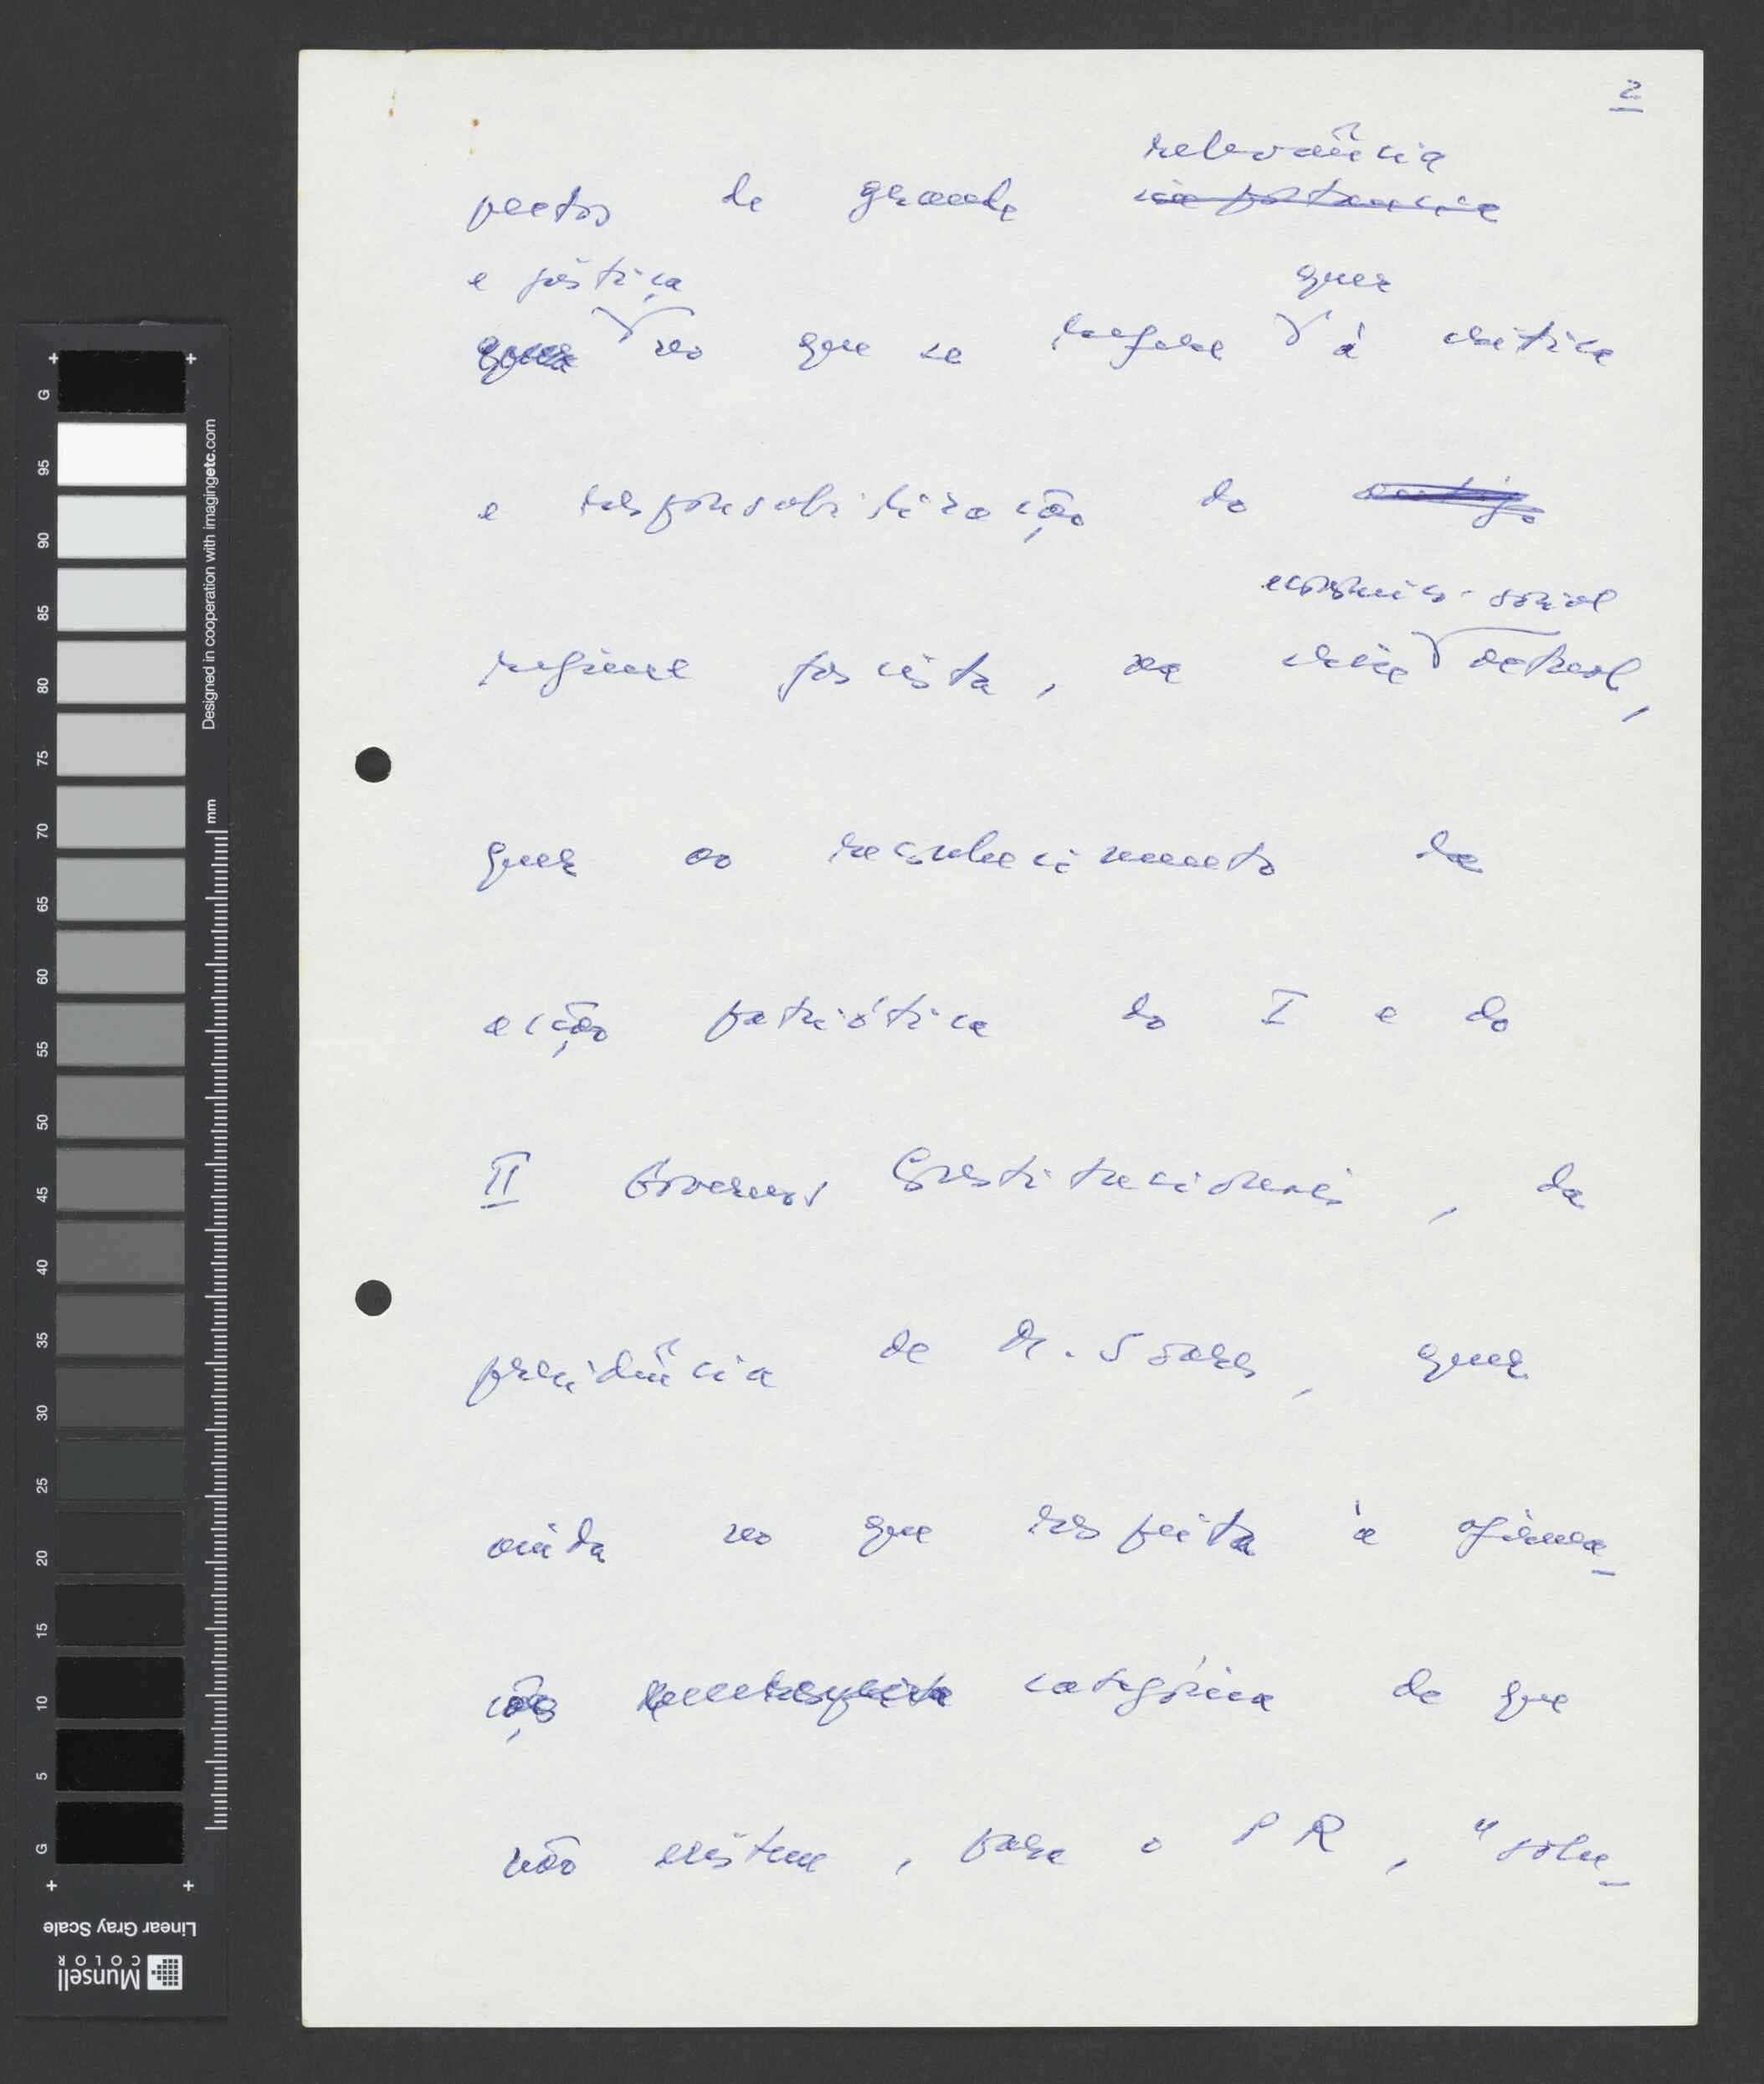 2
relevância
pectos de grande importancia
e justiça quer
quer no que se refere à crítica
e responsabilização do antigo
económico-social
regime fascista, na crise actual,
quer ao reconhecimento da
acção patriótica do I e do
II Governos Constitucionais, da
presidência de Dr. Soares, quer
ainda no que respeita à afirma-
ção categórica de que
não existem, para o PR, "solu-
G
95
90
85
80
75
70
65
60
55
50
45
40
35
30
25
20
15
10
5
G
mm
Designed in cooperation with imagingetc.com
Linear Gray Scale
Munsell
COLOR